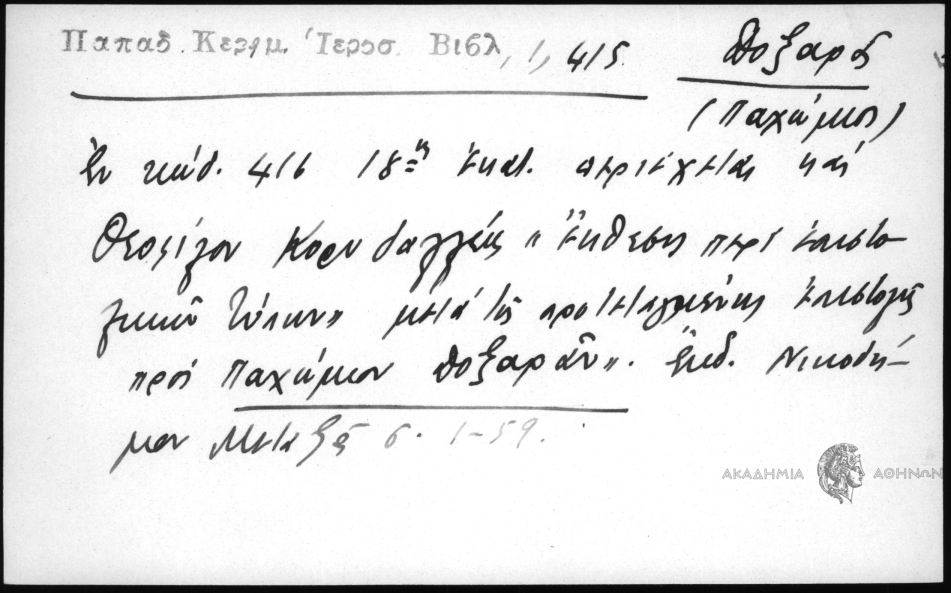 Παπαδ. Κεραμ. Ἱεροσ. Βιβλ, 1, 415. Δοξαρᾶς
(Παχώμιος)
Ἐν κώδ. 416 18ης ἑκατ. περιέχεται καὶ
Θεοφίλου Κορυδαλλέως «Ἔκθεσις περὶ ἐπιστο-
λικῶν τύπων» μετὰ τῆς προτεταγμένης ἐπιστολῆς
πρὸς Παχώμιον Δοξαρᾶν». Ἐκδ. Νικοδή-
μου Μεταξᾶ σ. 1-59.
ΑΚΑΔΗΜΙΑ ΑΘΗΝΩΝ